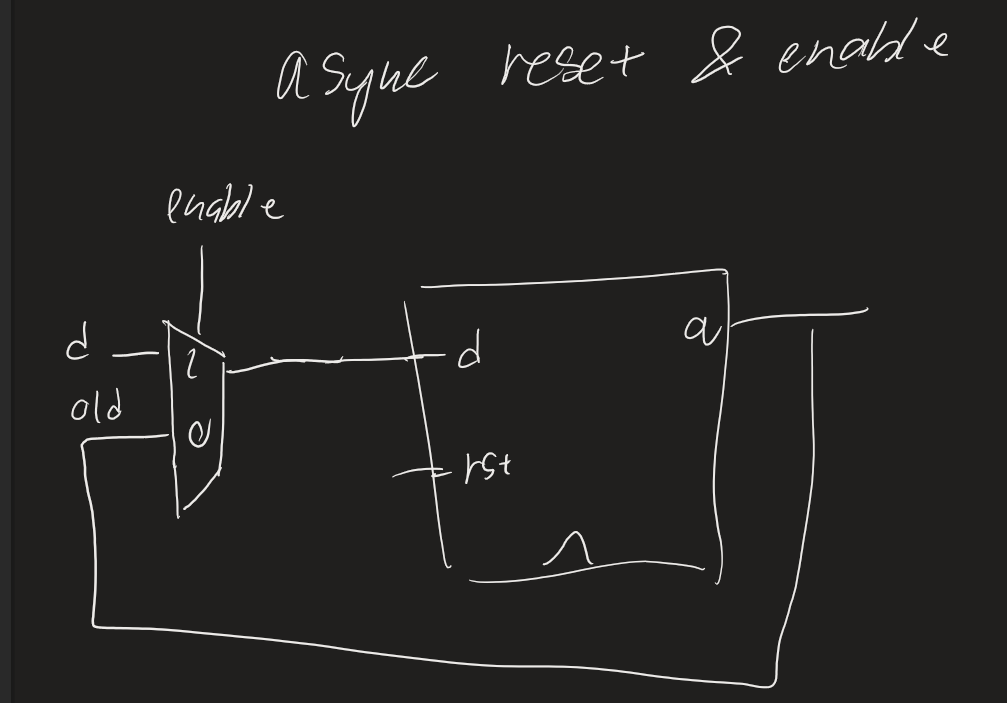 async reset & enable
enable
d
1
d
Q
old
0
rst